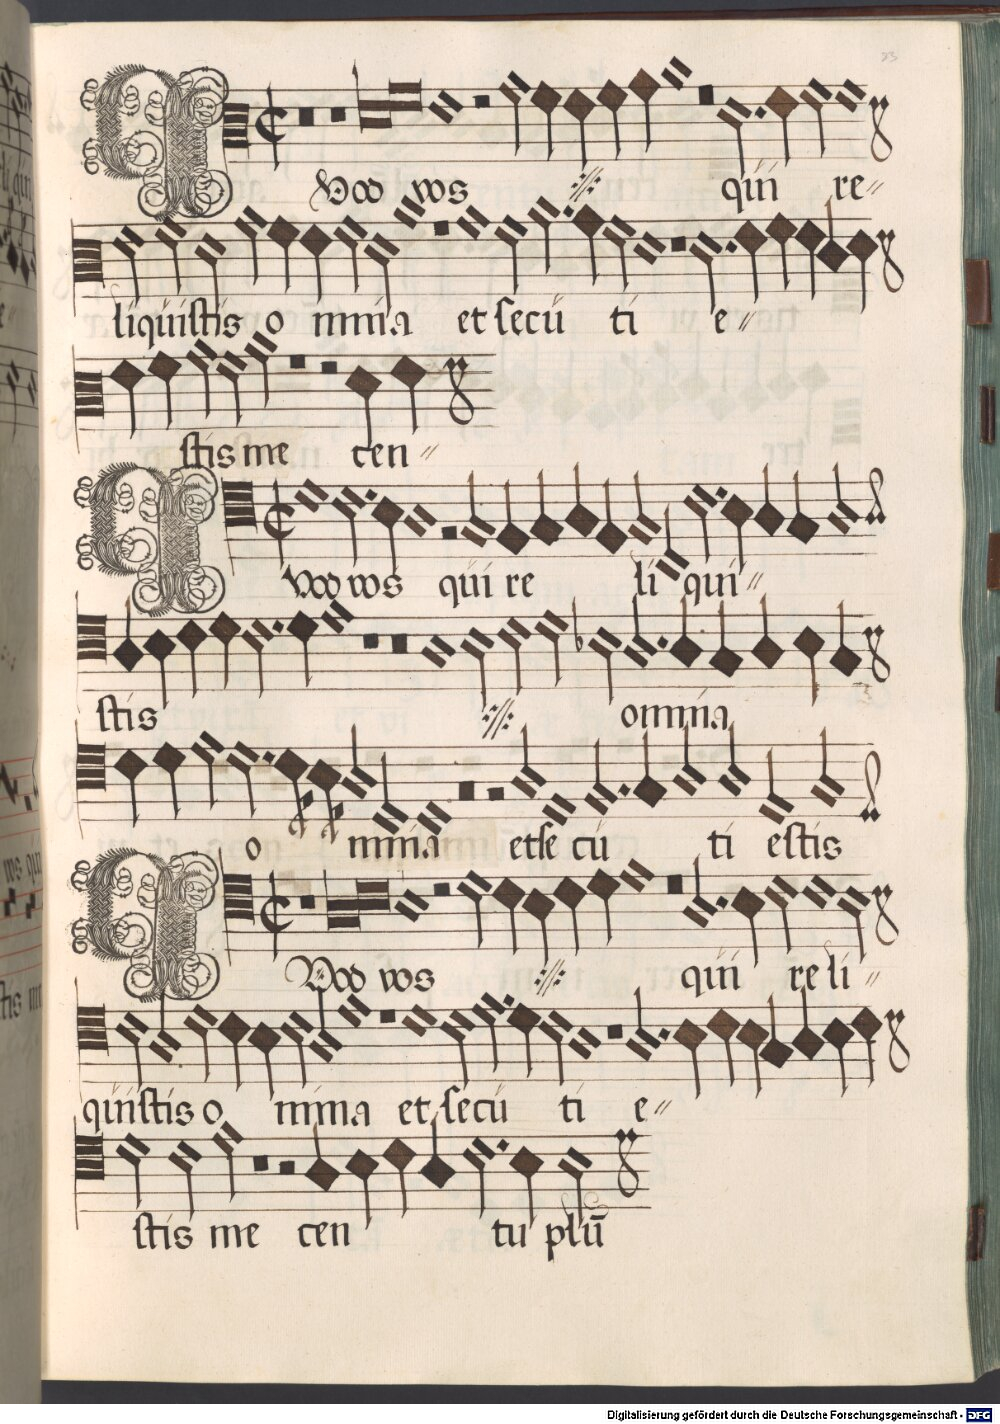 83
Vos vos ·//· qui re-
liquistis omnia et secū ti e-
stis me cen-
Vos vos qui re li qui-
stis ·//· omnia
o mnia et se cu ti estis
Vos vos ·//· qui re li-
quistis o mnia et secū ti e-
stis me cen tu plū
Digitalisierung gefördert durch die Deutsche Forschungsgemeinschaft - DFG